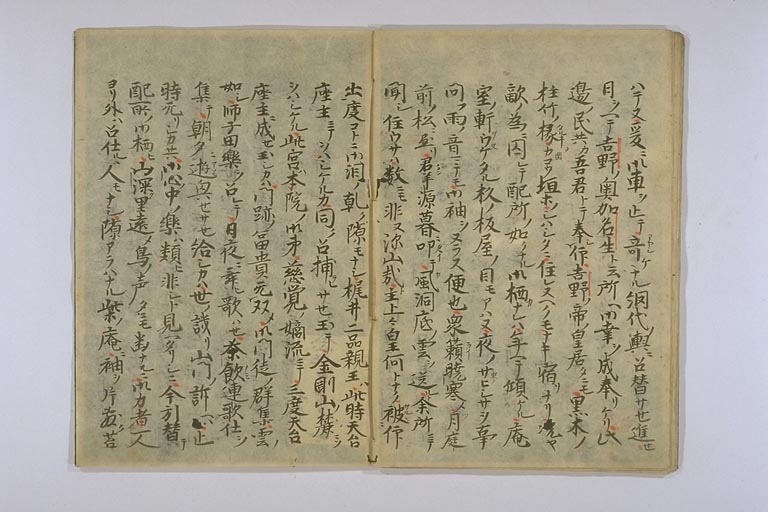 ハテ又爰ニハ御車ヲ止テ奇ケナル網代輿ニ召替サセ進セ
日ヲヘテ吉野ノ奥加名生ト云所ヘ御幸ヲ成奉リケリ此
邊ノ民共カ吾君トテ奉仰吉野ノ帝ノ皇居タニモ黒木ノ
柱竹ノ椽カコウ垣ホシハシタニモ住レヌヘクモナキ宿リナリ況ヤ
敵ノ為ニ囚レテ配所ノ如クナル御栖ナレハ年ヲ テ頽ケル庵
室ノ軒ウケタル杉ノ板屋ノ目モアハヌ夜ノサヒシサヲ事
問フ雨ノ音マテモ御袖ヲヌラス便也衆籟暁寒シテ月庭
前ノ松ニ リ群源暮叩テ風洞底ノ雲ヲ送ル余所ニテ
聞シ住ウサハ数ニモ非ス深山哉ト主上々皇何トナク被仰
出度コトニ御泪ノ乾ク隙モナシ梶井二品親王ハ此時天台
座主ニテヲハシケルカ同ク召捕レサセ玉テ金剛山ノ麓ニソ
ヲハシケル此宮ハ本院ノ御弟慈覚ノ嫡流ニテ三度天台
座主ニ成セ玉シカハ門跡ノ富貴无双御門徒ノ群集雲ノ
如シ師子田樂ヲ召シテ日夜ニ舞歌ハセ茶飲連歌仕ヲ
集テ朝夕遊興セサセ給シカハ世ノ謗リ山門ノ訴ハ止
時元リシカ共御心中ノ樂ハ類ヒ非シト見ヘタリシニ今引替タル
配所ノ御栖山深ク里遠メ鳥ノ声タニモ幽ナルニ御力者一人
ヨリ外ハ召仕ル人モナシ隙アラハナル柴ノ庵ニ袖ヲ片敷苔